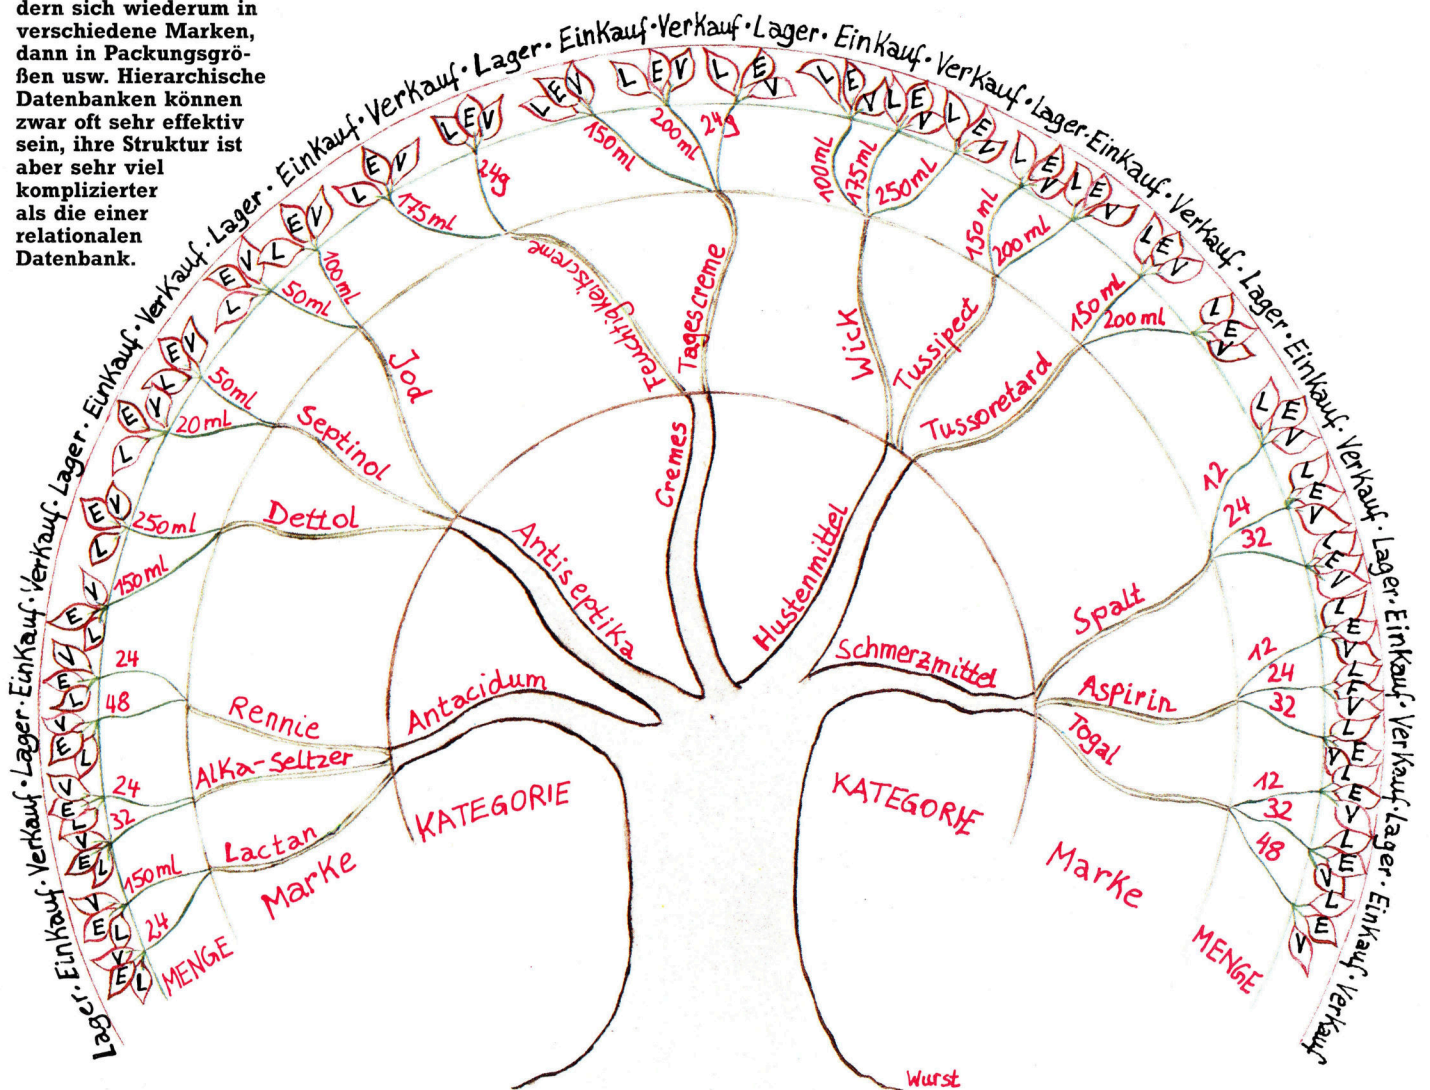 dern sich wiederum in
verschiedene Marken,
dann in Packungsgrö-
ßen usw. Hierarchische
Datenbanken können
zwar oft sehr effektiv
sein, ihre Struktur ist
aber sehr viel
komplizierter
als die einer
relationalen
Datenbank.
Lager · Einkauf · Verkauf · Lager · Einkauf · Verkauf · Lager · Einkauf · Verkauf · Lager · Einkauf · Verkauf · Lager · Einkauf · Verkauf · Lager · Einkauf · Verkauf · Lager · Einkauf · Verkauf · Lager · Einkauf · Verkauf · Lager · Einkauf · Verkauf · Lager · Einkauf · Verkauf · Lager · Einkauf · Verkauf · Lager · Einkauf · Verkauf · Lager · Einkauf · Verkauf
Antacidum
Rennie
24
48
Alka-Seltzer
24
32
Lactan
150 ml
24
Antiseptika
Jod
100 ml
50 ml
Septinol
50 ml
20 ml
Dettol
250 ml
150 ml
Cremes
Feuchtigkeitscreme
175 ml
24g
Tagescreme
150 ml
200 ml
24g
Hustenmittel
Wick
100 ml
175 ml
250 ml
Tussipect
150 ml
200 ml
Tussoretard
150 ml
200 ml
Schmerzmittel
Spalt
12
24
32
Aspirin
12
24
32
Togal
12
32
48
KATEGORIE
Marke
MENGE
KATEGORIE
Marke
MENGE
Wurst